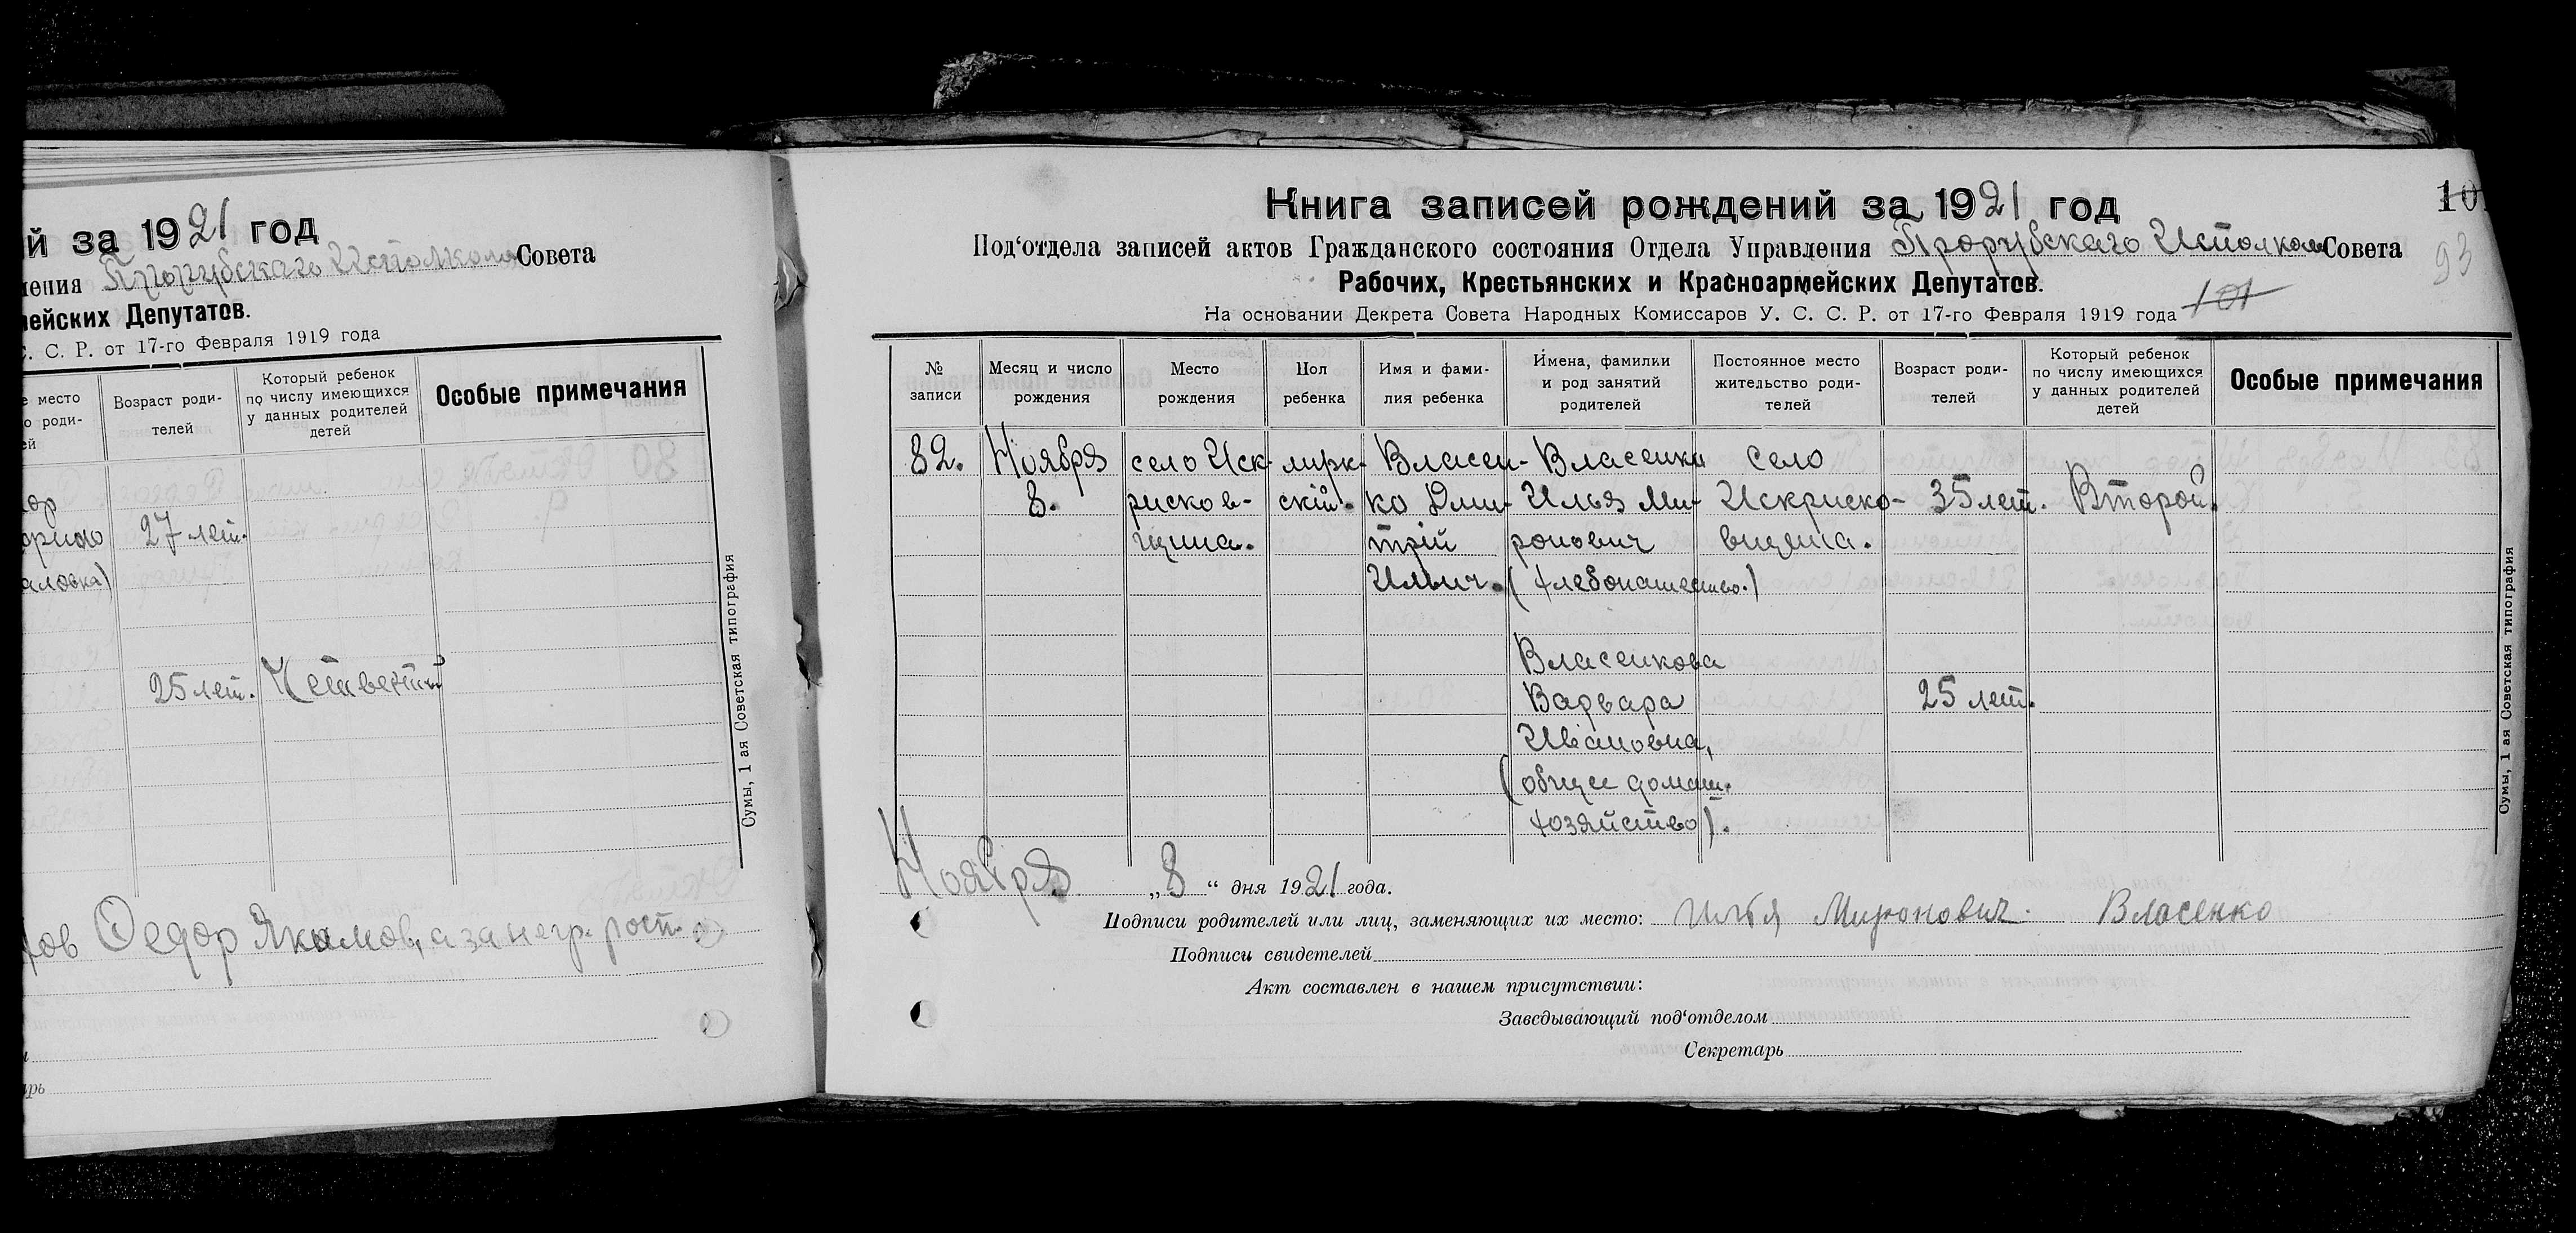 й за 1921 год
ления Прорубскаго Исполкома Совета
мейских Депутатов.
С. С. Р. от 17-го Февраля 1919 года
е место
о роди-
ей
Возраст роди-
телей
Который ребенок
по числу имеющихся
у данных родителей
детей
Особые примечания
27 лет.
аловка)
25 лет.
Четвертый
Сумы, 1 ая Советская типография
Федор Якимов, а за негр. росп.
арь
Книга записей рождений за 1921 год
Под‘отдела записей актов Гражданского состояния Отдела Управления Прорубскаго Исполкома Совета
Рабочих, Крестьянских и Красноармейских Депутатов.
На основании Декрета Совета Народных Комиссаров У. С. С. Р. от 17-го Февраля 1919 года
101
10
93
№
записи
Месяц и число
рождения
Место
рождения
Пол
ребенка
Имя и фами-
лия ребенка
Имена, фамилии
и род занятий
родителей
Постоянное место
жительство роди-
телей
Возраст роди-
телей
Который ребенок
по числу имеющихся
у данных родителей
детей
Особые примечания
82.
Ноября
8.
село Иск-
рисков-
щина.
мужс-
скій.
Власен-
ко Дми-
трій
Ильич.
Власенко
Илья Ми-
ронович
(хлебопашество.)
Власенкова
Варвара
Ивановна,
(общее домаш.
хозяйство).
село
Искриско-
вщина.
35 лет.
25 лет.
Второй.
Ноября „8“ дня 1921 года.
Подписи родителей или лиц, заменяющих их место: Илья Миронович Власенко
Подписи свидетелей
Акт составлен в нашем присутствии:
Заведывающий под‘отделом
Секретарь
Сумы, 1 ая Советская типография